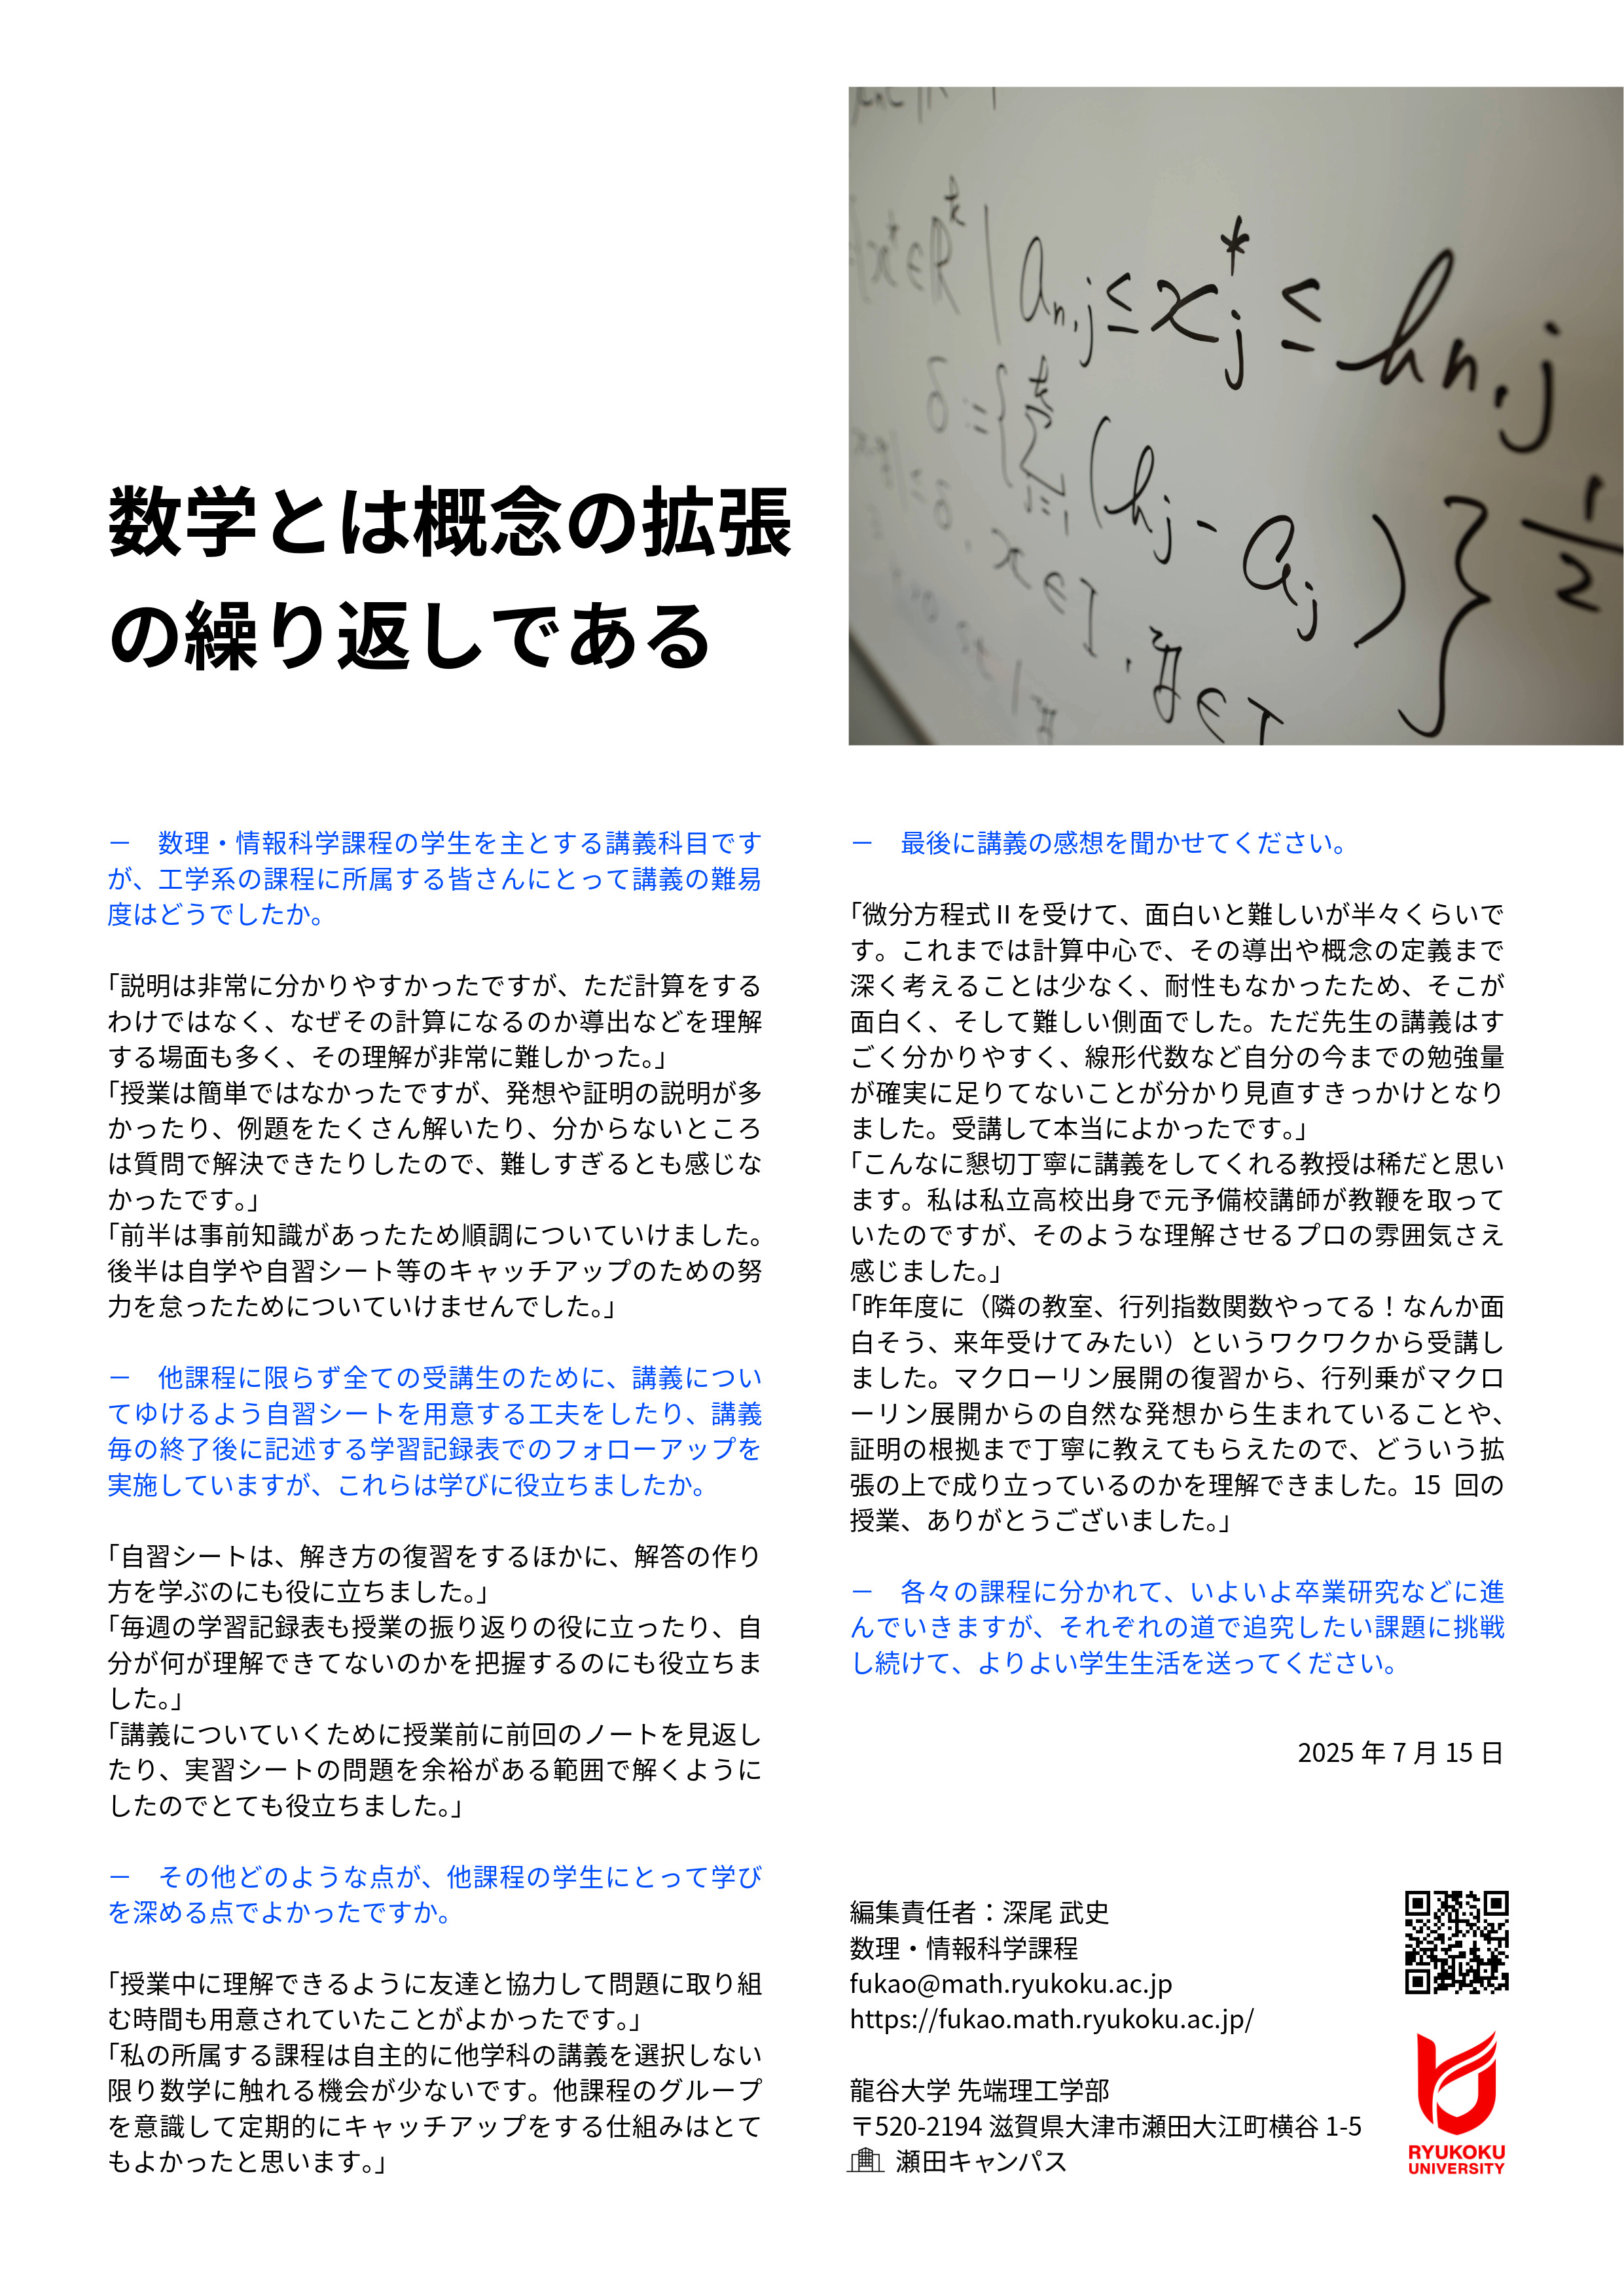 数学とは概念の拡張
の繰り返しである
a n,j ≤ x*j ≤ h n,j
(hj - aj) } 1/2
− 数理・情報科学課程の学生を主とする講義科目です
が、工学系の課程に所属する皆さんにとって講義の難易
度はどうでしたか。
「説明は非常に分かりやすかったですが、ただ計算をする
わけではなく、なぜその計算になるのか導出などを理解
する場面も多く、その理解が非常に難しかった。」
「授業は簡単ではなかったですが、発想や証明の説明が多
かったり、例題をたくさん解いたり、分からないところ
は質問で解決できたりしたので、難しすぎるとも感じな
かったです。」
「前半は事前知識があったため順調についていけました。
後半は自学や自習シート等のキャッチアップのための努
力を怠ったためについていけませんでした。」
− 他課程に限らず全ての受講生のために、講義につい
てゆけるよう自習シートを用意する工夫をしたり、講義
毎の終了後に記述する学習記録表でのフォローアップを
実施していますが、これらは学びに役立ちましたか。
「自習シートは、解き方の復習をするほかに、解答の作り
方を学ぶのにも役に立ちました。」
「毎週の学習記録表も授業の振り返りの役に立ったり、自
分が何が理解できてないのかを把握するのにも役立ちま
した。」
「講義についていくために授業前に前回のノートを見返し
たり、実習シートの問題を余裕がある範囲で解くように
したのでとても役立ちました。」
− その他どのような点が、他課程の学生にとって学び
を深める点でよかったですか。
「授業中に理解できるように友達と協力して問題に取り組
む時間も用意されていたことがよかったです。」
「私の所属する課程は自主的に他学科の講義を選択しない
限り数学に触れる機会が少ないです。他課程のグループ
を意識して定期的にキャッチアップをする仕組みはとて
もよかったと思います。」
− 最後に講義の感想を聞かせてください。
「微分方程式 II を受けて、面白いと難しいが半々くらいで
す。これまでは計算中心で、その導出や概念の定義まで
深く考えることは少なく、耐性もなかったため、そこが
面白く、そして難しい側面でした。ただ先生の講義はす
ごく分かりやすく、線形代数など自分の今までの勉強量
が確実に足りてないことが分かり見直すきっかけとなり
ました。受講して本当によかったです。」
「こんなに懇切丁寧に講義をしてくれる教授は稀だと思い
ます。私は私立高校出身で元予備校講師が教鞭を取って
いたのですが、そのような理解させるプロの雰囲気さえ
感じました。」
「昨年度に（隣の教室、行列指数関数やってる！なんか面
白そう、来年受けてみたい）というワクワクから受講し
ました。マクローリン展開の復習から、行列乗がマクロ
ーリン展開からの自然な発想から生まれていることや、
証明の根拠まで丁寧に教えてもらえたので、どういう拡
張の上で成り立っているのかを理解できました。15 回の
授業、ありがとうございました。」
− 各々の課程に分かれて、いよいよ卒業研究などに進
んでいきますが、それぞれの道で追究したい課題に挑戦
し続けて、よりよい学生生活を送ってください。
2025 年 7 月 15 日
編集責任者：深尾 武史
数理・情報科学課程
fukao@math.ryukoku.ac.jp
https://fukao.math.ryukoku.ac.jp/
龍谷大学 先端理工学部
〒520-2194 滋賀県大津市瀬田大江町横谷 1-5
瀬田キャンパス
RYUKOKU
UNIVERSITY